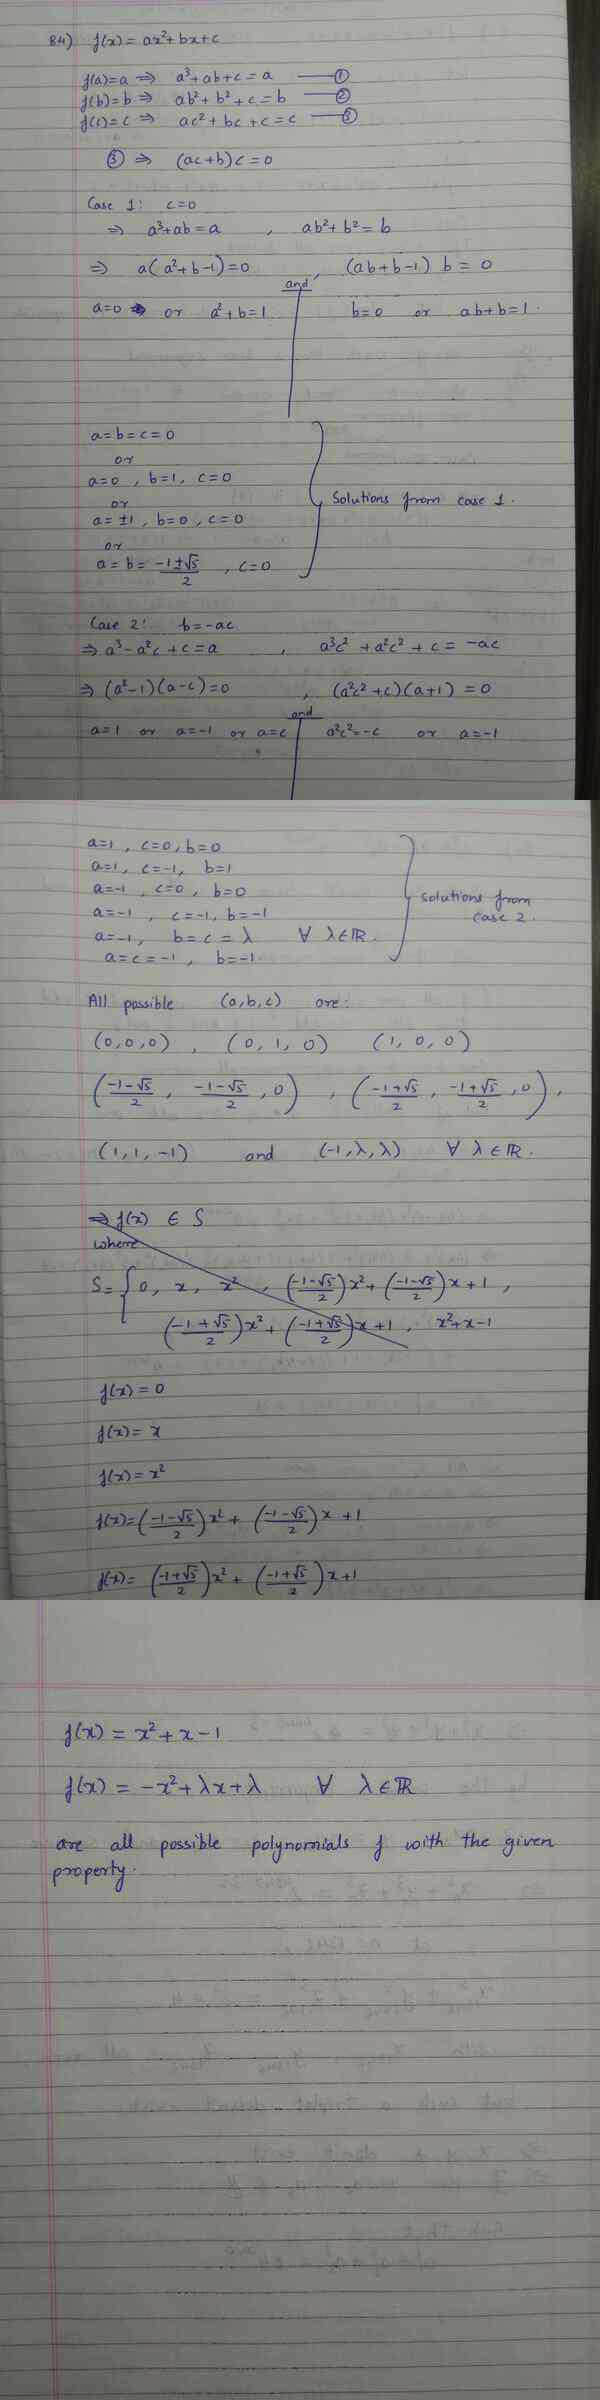 B4) f(x) = ax² + bx + c
f(a) = a ⇒ a³ + ab + c = a —— ①
f(b) = b ⇒ ab² + b² + c = b —— ②
f(c) = c ⇒ ac² + bc + c = c —— ③
③ ⇒ (ac+b)c = 0
Case 1: c=0
⇒ a³+ab = a , ab²+b² = b
⇒ a(a²+b-1)=0 , (ab+b-1) b = 0
and
a=0 or a²+b=1 b=0 or ab+b=1.
a=b=c=0
or
a=0, b=1, c=0
or
a=±1, b=0, c=0
or
a=b= (-1±√5)/2 , c=0
Solutions from case 1.
Case 2: b=-ac
⇒ a³-a²c+c=a , a³c²+a²c²+c = -ac
⇒ (a²-1)(a-c)=0 , (a²c²+c)(a+1) = 0
and
a=1 or a=-1 or a=c a²c²=-c or a=-1
a=1, c=0, b=0
a=1, c=-1, b=1
a=-1, c=0, b=0
a=-1, c=-1, b=-1
a=-1, b=c=λ ∀ λ∈ℝ.
a=c=-1, b=-1.
solutions from case 2.
All possible (a,b,c) are:
(0,0,0) , (0,1,0) (1,0,0)
((-1-√5)/2, (-1-√5)/2, 0) , ((-1+√5)/2, (-1+√5)/2, 0),
(1,1,-1) and (-1,λ,λ) ∀ λ∈ℝ.
⇒ f(x) ∈ S
where
S = { 0, x, x², ((-1-√5)/2)x² + ((-1-√5)/2)x + 1,
((-1+√5)/2)x² + ((-1+√5)/2)x + 1, x²+x-1
f(x) = 0
f(x) = x
f(x) = x²
f(x) = ((-1-√5)/2)x² + ((-1-√5)/2)x + 1
f(x) = ((-1+√5)/2)x² + ((-1+√5)/2)x + 1
f(x) = x² + x - 1
f(x) = -x² + λx + λ ∀ λ∈ℝ
are all possible polynomials f with the given
property.